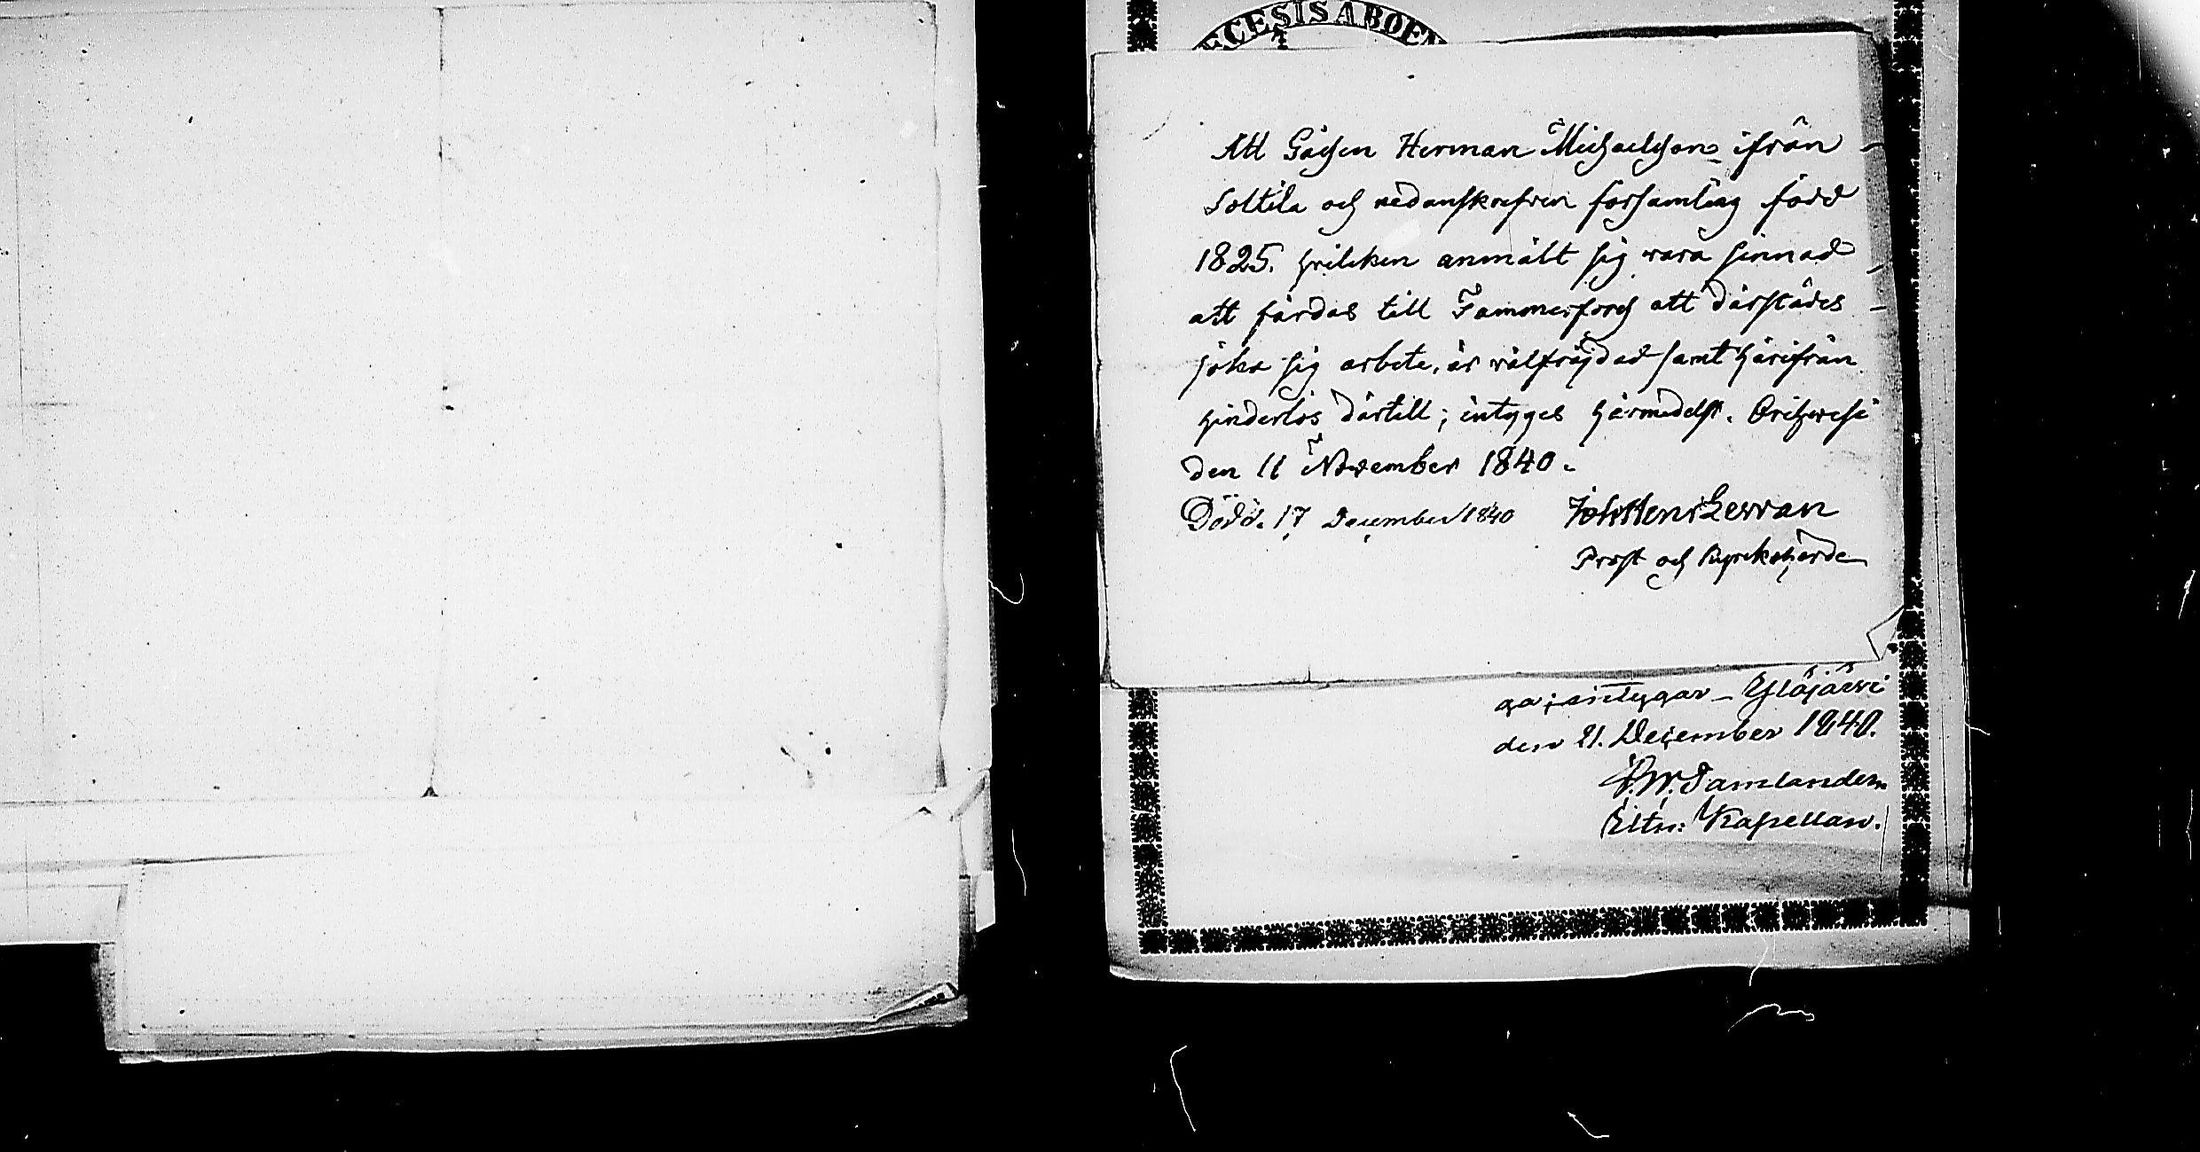 ECESIS ABOEN
Att Gåßen Herman Michaelsson ifrån
Sottila och nedanskrefven församling född
1825. hvilcken anmält sig vara sinnad
att färdas till Tammerfors att därstädes
söka sig arbete, är välfräjdad samt härifrån
hinderlös därtill; intyges härmedelst. Orihvesi
den 11 November 1840.
Död d. 17 December 1840 Joh Henr Levvan
Prost och Kyrkoherde
ga; intygar _ Ylöjärvi
den 21. December 1840.
F. W. Tamlander
Kapellan.